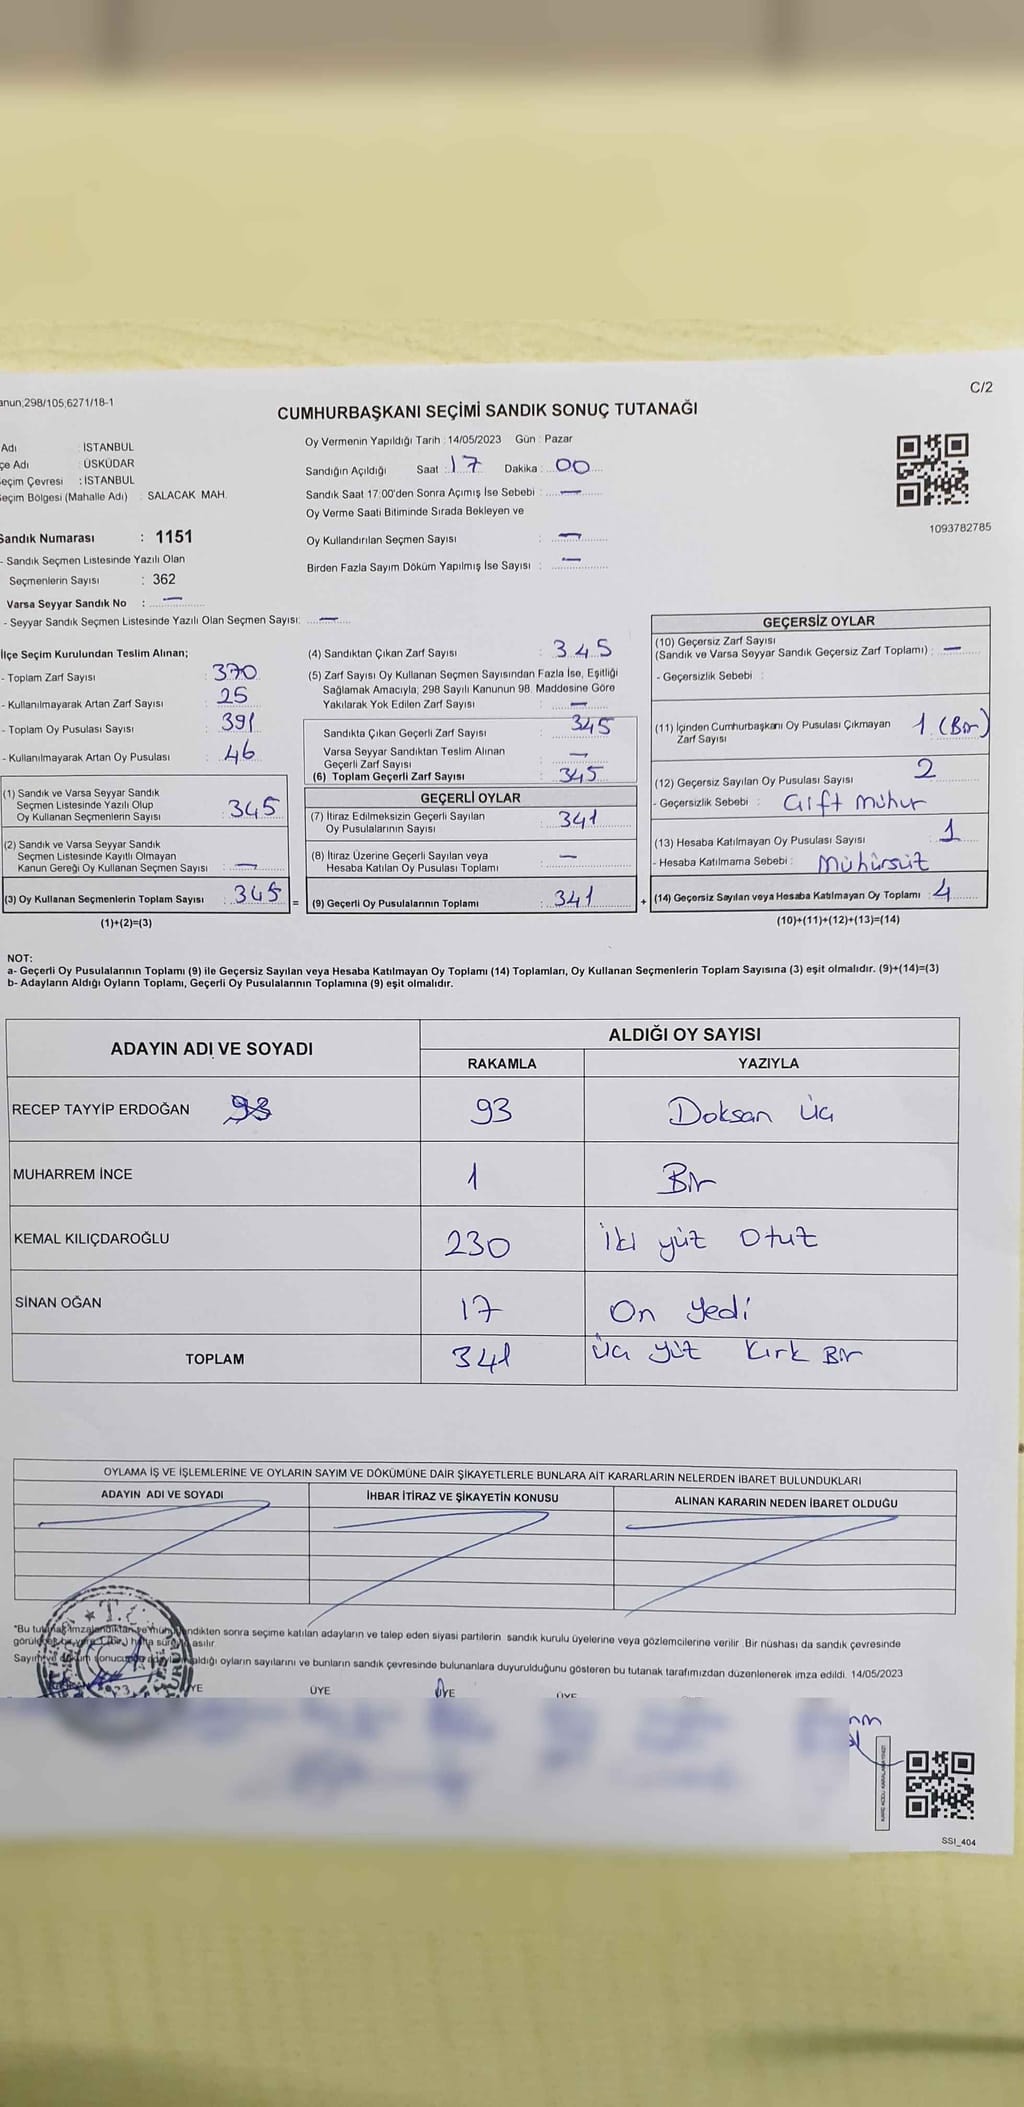 anun;298/105,6271/18-1
C/2
CUMHURBAŞKANI SEÇİMİ SANDIK SONUÇ TUTANAĞI
Adı : İSTANBUL
çe Adı : ÜSKÜDAR
eçim Çevresi : İSTANBUL
eçim Bölgesi (Mahalle Adı) : SALACAK MAH.
Sandık Numarası : 1151
- Sandık Seçmen Listesinde Yazılı Olan
Seçmenlerin Sayısı : 362
Varsa Seyyar Sandık No : —
- Seyyar Sandık Seçmen Listesinde Yazılı Olan Seçmen Sayısı: —
Oy Vermenin Yapıldığı Tarih : 14/05/2023 Gün : Pazar
Sandığın Açıldığı Saat : 17 Dakika : 00
Sandık Saat 17:00'den Sonra Açımış İse Sebebi : —
Oy Verme Saati Bitiminde Sırada Bekleyen ve
Oy Kullandırılan Seçmen Sayısı : —
Birden Fazla Sayım Döküm Yapılmış İse Sayısı : —
1093782785
İlçe Seçim Kurulundan Teslim Alınan;
- Toplam Zarf Sayısı : 370
- Kullanılmayarak Artan Zarf Sayısı : 25
- Toplam Oy Pusulası Sayısı : 391
- Kullanılmayarak Artan Oy Pusulası : 46
(1) Sandık ve Varsa Seyyar Sandık
Seçmen Listesinde Yazılı Olup
Oy Kullanan Seçmenlerin Sayısı : 345
(2) Sandık ve Varsa Seyyar Sandık
Seçmen Listesinde Kayıtlı Olmayan
Kanun Gereği Oy Kullanan Seçmen Sayısı : —
(3) Oy Kullanan Seçmenlerin Toplam Sayısı : 345 =
(1)+(2)=(3)
(4) Sandıktan Çıkan Zarf Sayısı : 345
(5) Zarf Sayısı Oy Kullanan Seçmen Sayısından Fazla İse, Eşitliği
Sağlamak Amacıyla, 298 Sayılı Kanunun 98. Maddesine Göre
Yakılarak Yok Edilen Zarf Sayısı : —
Sandıkta Çıkan Geçerli Zarf Sayısı : 345
Varsa Seyyar Sandıktan Teslim Alınan
Geçerli Zarf Sayısı : —
(6) Toplam Geçerli Zarf Sayısı : 345
GEÇERLİ OYLAR
(7) İtiraz Edilmeksizin Geçerli Sayılan
Oy Pusulalarının Sayısı : 341
(8) İtiraz Üzerine Geçerli Sayılan veya
Hesaba Katılan Oy Pusulası Toplamı : —
(9) Geçerli Oy Pusulalarının Toplamı : 341 +
GEÇERSİZ OYLAR
(10) Geçersiz Zarf Sayısı
(Sandık ve Varsa Seyyar Sandık Geçersiz Zarf Toplamı) : —
- Geçersizlik Sebebi :
(11) İçinden Cumhurbaşkanı Oy Pusulası Çıkmayan
Zarf Sayısı 1 (Bir)
(12) Geçersiz Sayılan Oy Pusulası Sayısı : 2
- Geçersizlik Sebebi : Çift mühür
(13) Hesaba Katılmayan Oy Pusulası Sayısı : 1
- Hesaba Katılmama Sebebi : Mühürsüz
(14) Geçersiz Sayılan veya Hesaba Katılmayan Oy Toplamı : 4
(10)+(11)+(12)+(13)=(14)
NOT:
a- Geçerli Oy Pusulalarının Toplamı (9) ile Geçersiz Sayılan veya Hesaba Katılmayan Oy Toplamı (14) Toplamları, Oy Kullanan Seçmenlerin Toplam Sayısına (3) eşit olmalıdır. (9)+(14)=(3)
b- Adayların Aldığı Oyların Toplamı, Geçerli Oy Pusulalarının Toplamına (9) eşit olmalıdır.
ADAYIN ADI VE SOYADI
ALDIĞI OY SAYISI
RAKAMLA YAZIYLA
RECEP TAYYİP ERDOĞAN 93 93 Doksan üç
MUHARREM İNCE 1 Bir
KEMAL KILIÇDAROĞLU 230 iki yüz Otuz
SİNAN OĞAN 17 On yedi
TOPLAM 341 üç yüz Kırk Bir
OYLAMA İŞ VE İŞLEMLERİNE VE OYLARIN SAYIM VE DÖKÜMÜNE DAİR ŞİKAYETLERLE BUNLARA AİT KARARLARIN NELERDEN İBARET BULUNDUKLARI
ADAYIN ADI VE SOYADI İHBAR İTİRAZ VE ŞİKAYETİN KONUSU ALINAN KARARIN NEDEN İBARET OLDUĞU
T.C.
*Bu sonra seçime katılan adayların ve talep eden siyasi partilerin sandık kurulu üyelerine veya gözlemcilerine verilir. Bir nüshası da sandık çevresinde
asılır.
aldığı oyların sayılarını ve bunların sandık çevresinde bulunanlara duyurulduğunu gösteren bu tutanak tarafımızdan düzenlenerek imza edildi. 14/05/2023
ÜYE ÜYE ÜYE
SSI_404